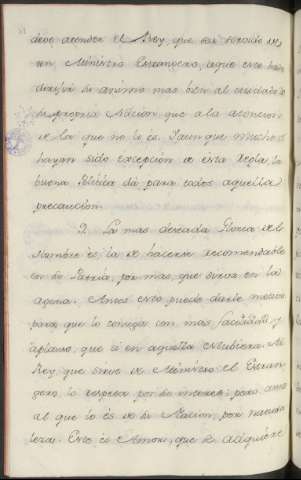 deve atender el Rey, que es servido de
un Ministro Extrangero, aque este
de animo mas bien al cuidado de
su propria Nacion que a la atencion
de la que no lo es. Y aunque muchos
hayan sido excepcion de esta regla, la
buena Politica dá para todos aquella
precaucion.
2. La mas deseada Gloria de el
Hombre es la de hacerse recomendable
en su Patria, por mas, que sirva en la
agena. Antes esto puede darle motivo
para que lo consiga con mas facilidad, y
aplauso, que si en aquella estubiera. Al
Rey, que sirve de Ministro el Extran
gero, lo respeta por su interes; pero ama
al que lo es de su Nacion, por natura
leza. Este es Amor, que se adquiere